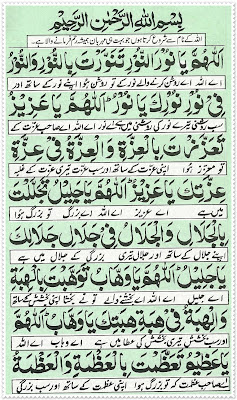 بِسْمِ اللهِ الرَّحْمٰنِ الرَّحِيْمِ
اللہ کے نام سے شروع کرتا ہوں جو بہت ہی مہربان ہمیشہ رحم فرمانے والا ہے۔
اَللّٰهُمَّ يَا نُوْرُ النُّوْرِ تَنَوَّرْتَ بِالنُّوْرِ وَالنُّوْرُ
اے اللہ اے روشن کرنے والے نور کے تو روشن ہوا اپنے نور کے ساتھ اور
فِيْ نُوْرِ نُوْرِكَ يَا نُوْرُ اَللّٰهُمَّ يَا عَزِيْزُ
سب روشنی تیرے نور کی روشنی میں ہے اے نور اے اللہ اے صاحب عزت کے
تَعَزَّزْتَ بِالْعِزَّةِ وَالْعِزَّةُ فِيْ عِزَّةِ
تو معزز ہوا اپنی عزت کے ساتھ اور سب عزت تیری عزت کے غلبہ
عِزَّتِكَ يَا عَزِيْزُ اَللّٰهُمَّ يَا جَلِيْلُ تَجَلَّلْتَ
میں ہے اے عزیز اے اللہ اے بزرگ تو بزرگ ہوا
بِالْجَلَالِ وَالْجَلَالُ فِيْ جَلَالِ جَلَالِكَ
اپنے جلال کے ساتھ اور جلال تیری بزرگی کے جلال میں ہے
يَا جَلِيْلُ اَللّٰهُمَّ يَا وَهَّابُ تَوَهَّبْتَ بِالْهِبَةِ
اے جلیل اے اللہ اے بخشنے والے تو نے بخشا اپنی بخشش کے ساتھ
وَالْهِبَةُ فِيْ هِبَةِ هِبَتِكَ يَا وَهَّابُ اَللّٰهُمَّ
اور سب بخشش تیری بخشش کی عطا میں ہے اے وہاب اے اللہ
يَا عَظِيْمُ تَعَظَّمْتَ بِالْعَظَمَةِ وَالْعَظَمَةُ
اے صاحب عظمت کہ تو بزرگ ہوا اپنی عظمت کے ساتھ اور سب بزرگی